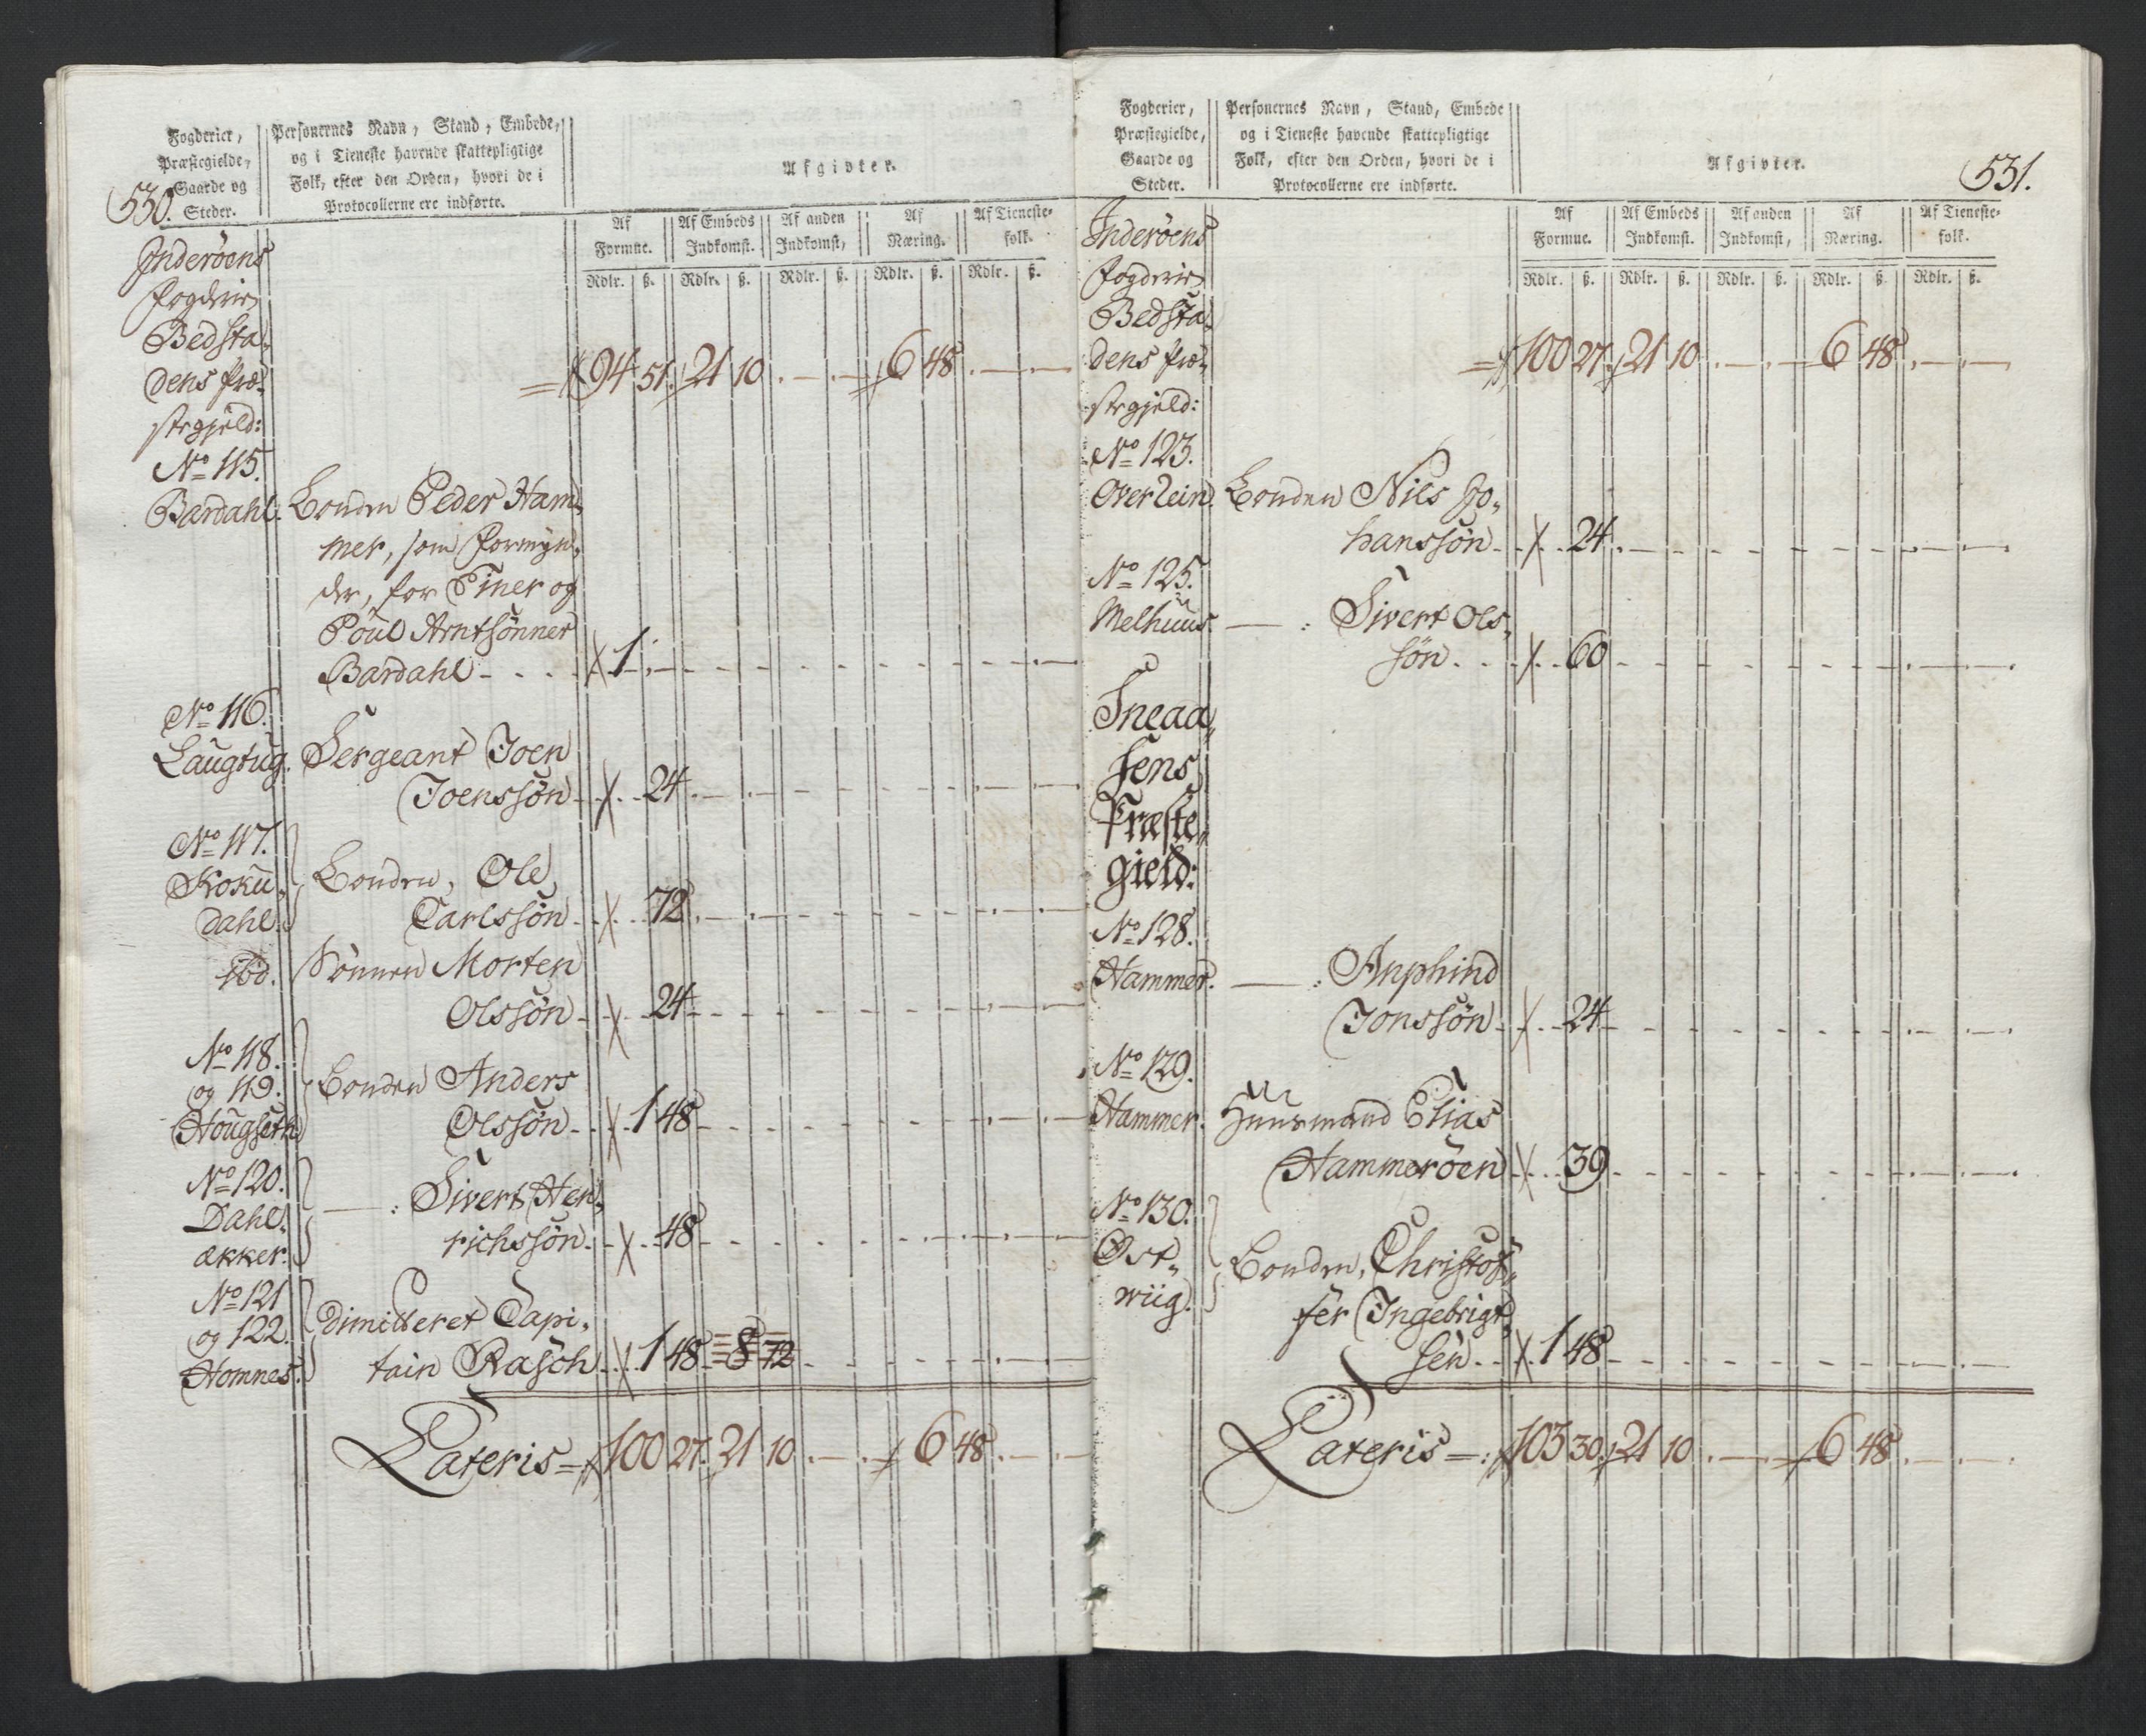 530.
Fogderier,
Præstegielde,
Gaarde og
Steder.
Personernes Navn, Stand, Embede,
og i Tieneste havende skattepligtige
Folk, efter den Orden, hvori de i
Protocollerne ere indførte.
Afgivter.
Af
Formue.
Af Embeds
Indkomst.
Af anden
Indkomst,
Af
Næring.
Af Tieneste-
folk.
Rdlr. ß. Rdlr. ß. Rdlr. ß. Rdlr. ß. Rdlr. ß.
Inderöens
Fogderie
Bedsta-
dens Præ- 94 51. 21 10 6 48
stegjeld:
No 115.
Bardahl. Bonden Peder Ham-
mer, som Formyn-
der, for Einer og
Poul Arntsönner
Bardahl 1
No 116.
Laugtug. Sergeant Joen
Joenssön 24
No 117.
Koku- Bonden, Ole
dahl. Carlssön 72
ibd. Sönnen Morten
Olssön 24
No 118.
og 119. Bonden Anders
Hougseth Olssön 1 48
No 120.
Dahl- —: Sivert Hen-
ækker. richssön 48
No 121
og 122. dimitteret Capi-
Homnes. tain Rasch 1 48 8 72
Lateris = 100 27. 21 10 6 48
531.
Fogderier,
Præstegielde,
Gaarde og
Steder.
Personernes Navn, Stand, Embede
og i Tieneste havende skattepligtige
Folk, efter den Orden, hvori de i
Protocollerne ere indførte.
Afgivter.
Af
Formue.
Af Embeds
Indkomst.
Af anden
Indkomst,
Af
Næring.
Af Tieneste-
folk.
Rdlr. ß. Rdlr. ß. Rdlr. ß. Rdlr. ß. Rdlr. ß.
Inderöens
Fogderie
Bedsta-
dens Præ- 100 27. 21 10 6 48
stegjeld:
No 123.
Overlein. Bonden Nils Jo-
hanssön 24
No 125.
Melhuus. —: Sivert Ols-
sön 60
Sneaa-
sens
Præste-
gield:
No 128.
Hammer. —: Anphind
Jonssön 24
No 129.
Hammer. Huusmand Elias
Hammeröen 39
No 130.
Öst- Bonden, Christof-
wiig. fer Ingebrigt-
sen 1 48
Lateris =: 103 30. 21 10 6 48